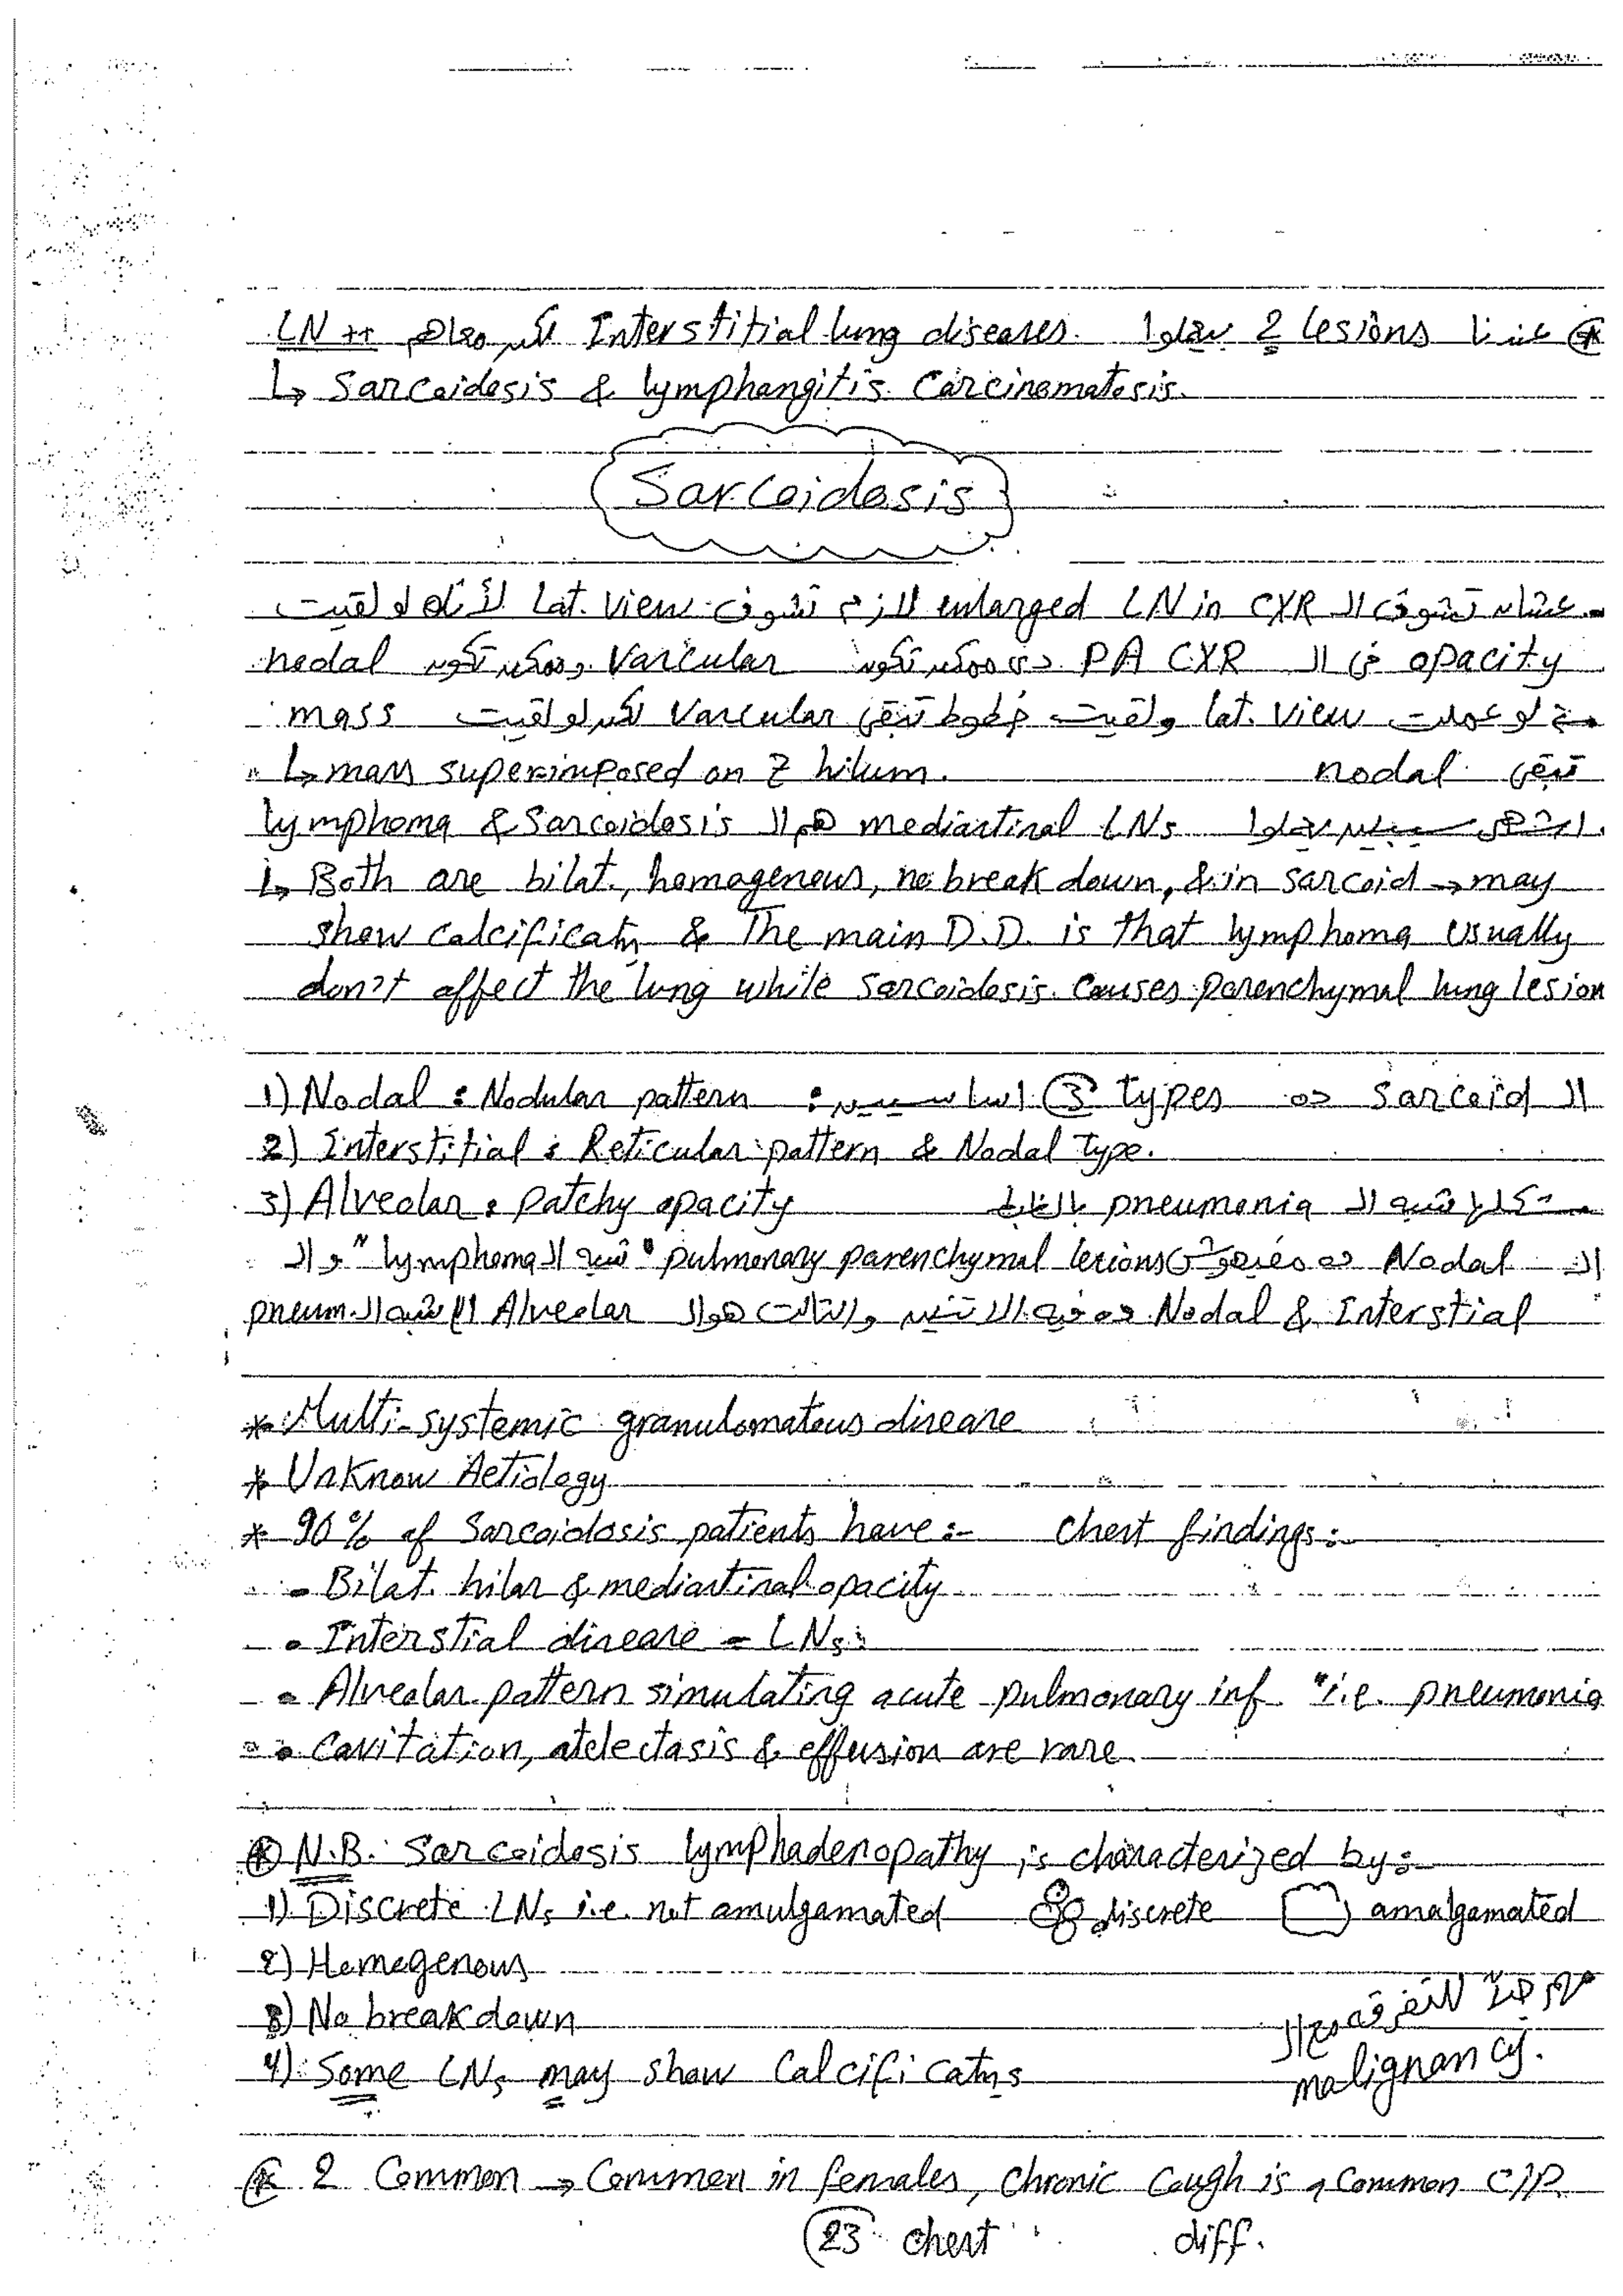 ⊛ عندنا 2 lesions بيعملوا Interstitial lung diseases. لكن معاهم ++ LN
↳ Sarcoidosis & lymphangitis Carcinomatosis.
Sarcoidosis
- عشان تشوف ال enlarged LN in CXR لازم تشوف Lat. View لأنك لو لقيت
opacity في ال PA CXR دي ممكن تكون Vascular وممكن تكون nodal
لو عملت lat. View ولقيت خطوط تبقى Vascular لكن لو لقيت mass
تبقى nodal
↳ mass superimposed on Z hilum.
بيعملوا mediastinal LNs هم ال lymphoma & Sarcoidosis
↳ Both are bilat., homogenous, no break down, & in sarcoid → may
show calcificatn & The main D.D. is that lymphoma Usually
don't affect the lung while sarcoidosis causes parenchymal lung lesion
ال sarcoid ده 3 types أساسيين: 1) Nodal : Nodular pattern
2) Interstitial : Reticular pattern & Nodal type.
3) Alveolar : Patchy opacity شبه ال pneumonia بالظبط
ال Nodal ده مفيهوش pulmonary parenchymal lesions "شبه ال lymphoma" وال
Nodal & Interstial ده فيه الاتنين والتالت هو ال Alveolar اللي شبه ال pneum.
* Multi-systemic granulomatous disease
* UnKnow Aetiology
* 90% of Sarcoidosis patients have :- Chest findings :-
- Bilat. hilar & mediastinal opacity
- Interstial disease - LNs
- Alveolar pattern simulating acute pulmonary inf. "i.e. pneumonia
- Cavitation, atelectasis & effusion are rare.
⊛ N.B. Sarcoidosis lymphadenopathy is characterized by :-
1) Discrete LNs i.e. not amulgamated discrete amalgamated
2) Homogenous
3) No break down
4) Some LNs may show Calcificatns
للتفرقة مع ال
malignancy.
⊛ 2 Common → Common in females, Chronic Cough is Common C/P.
23 chest diff.